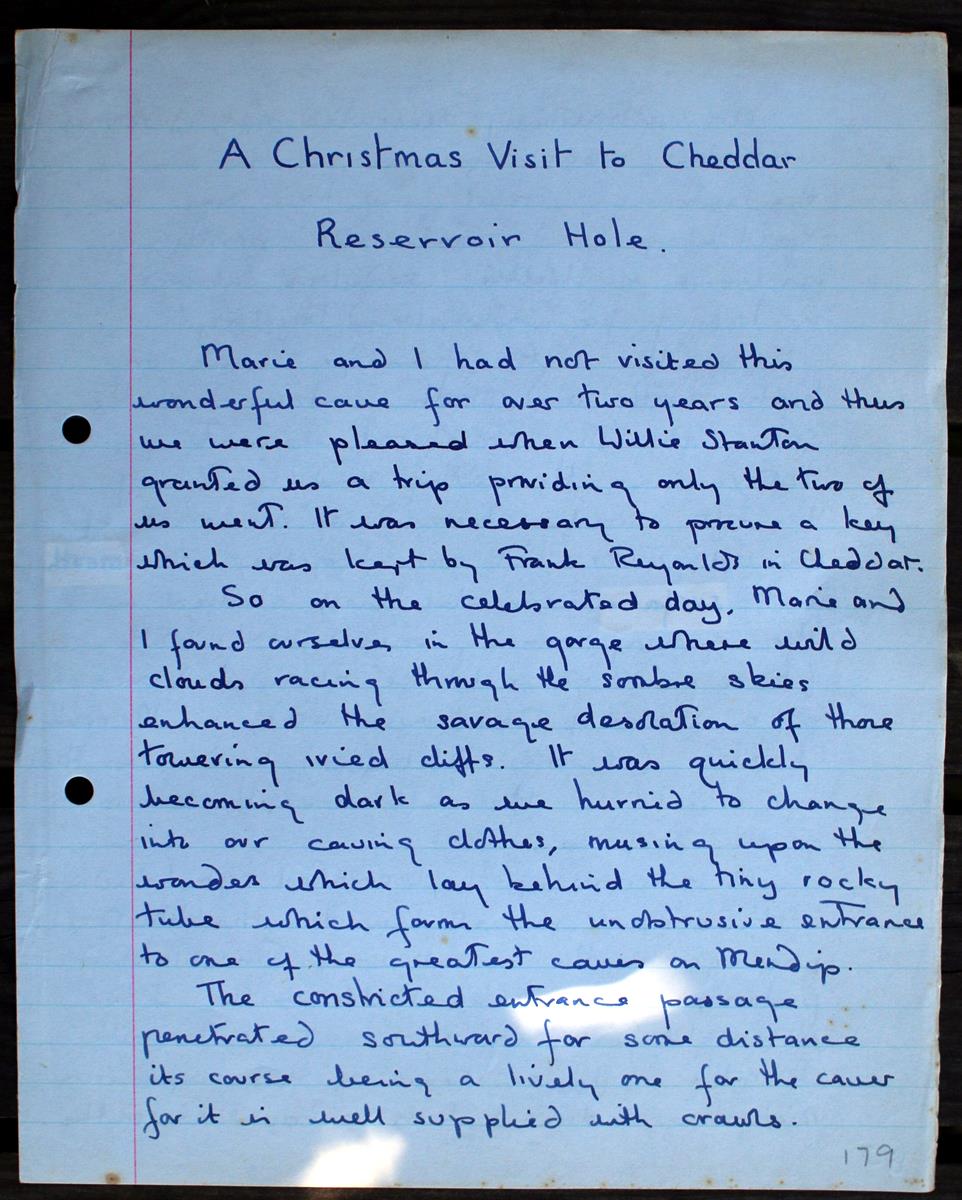 A Christmas Visit to Cheddar
Reservoir Hole.
Marie and I had not visited this
wonderful cave for over two years and thus
we were pleased when Willie Stanton
granted us a trip providing only the two of
us went. It was necessary to procure a key
which was kept by Frank Reynolds in Cheddar.
So on the celebrated day, Marie and
I found ourselves in the gorge where wild
clouds racing through the sombre skies
enhanced the savage desolation of those
towering ivied cliffs. It was quickly
becoming dark as we hurried to change
into our caving clothes, musing upon the
wonders which lay behind the tiny rocky
tube which forms the unobtrusive entrance
to one of the greatest caves on Mendip.
The constricted entrance passage
penetrated southward for some distance
its course being a lively one for the caver
for it is well supplied with crawls.
179